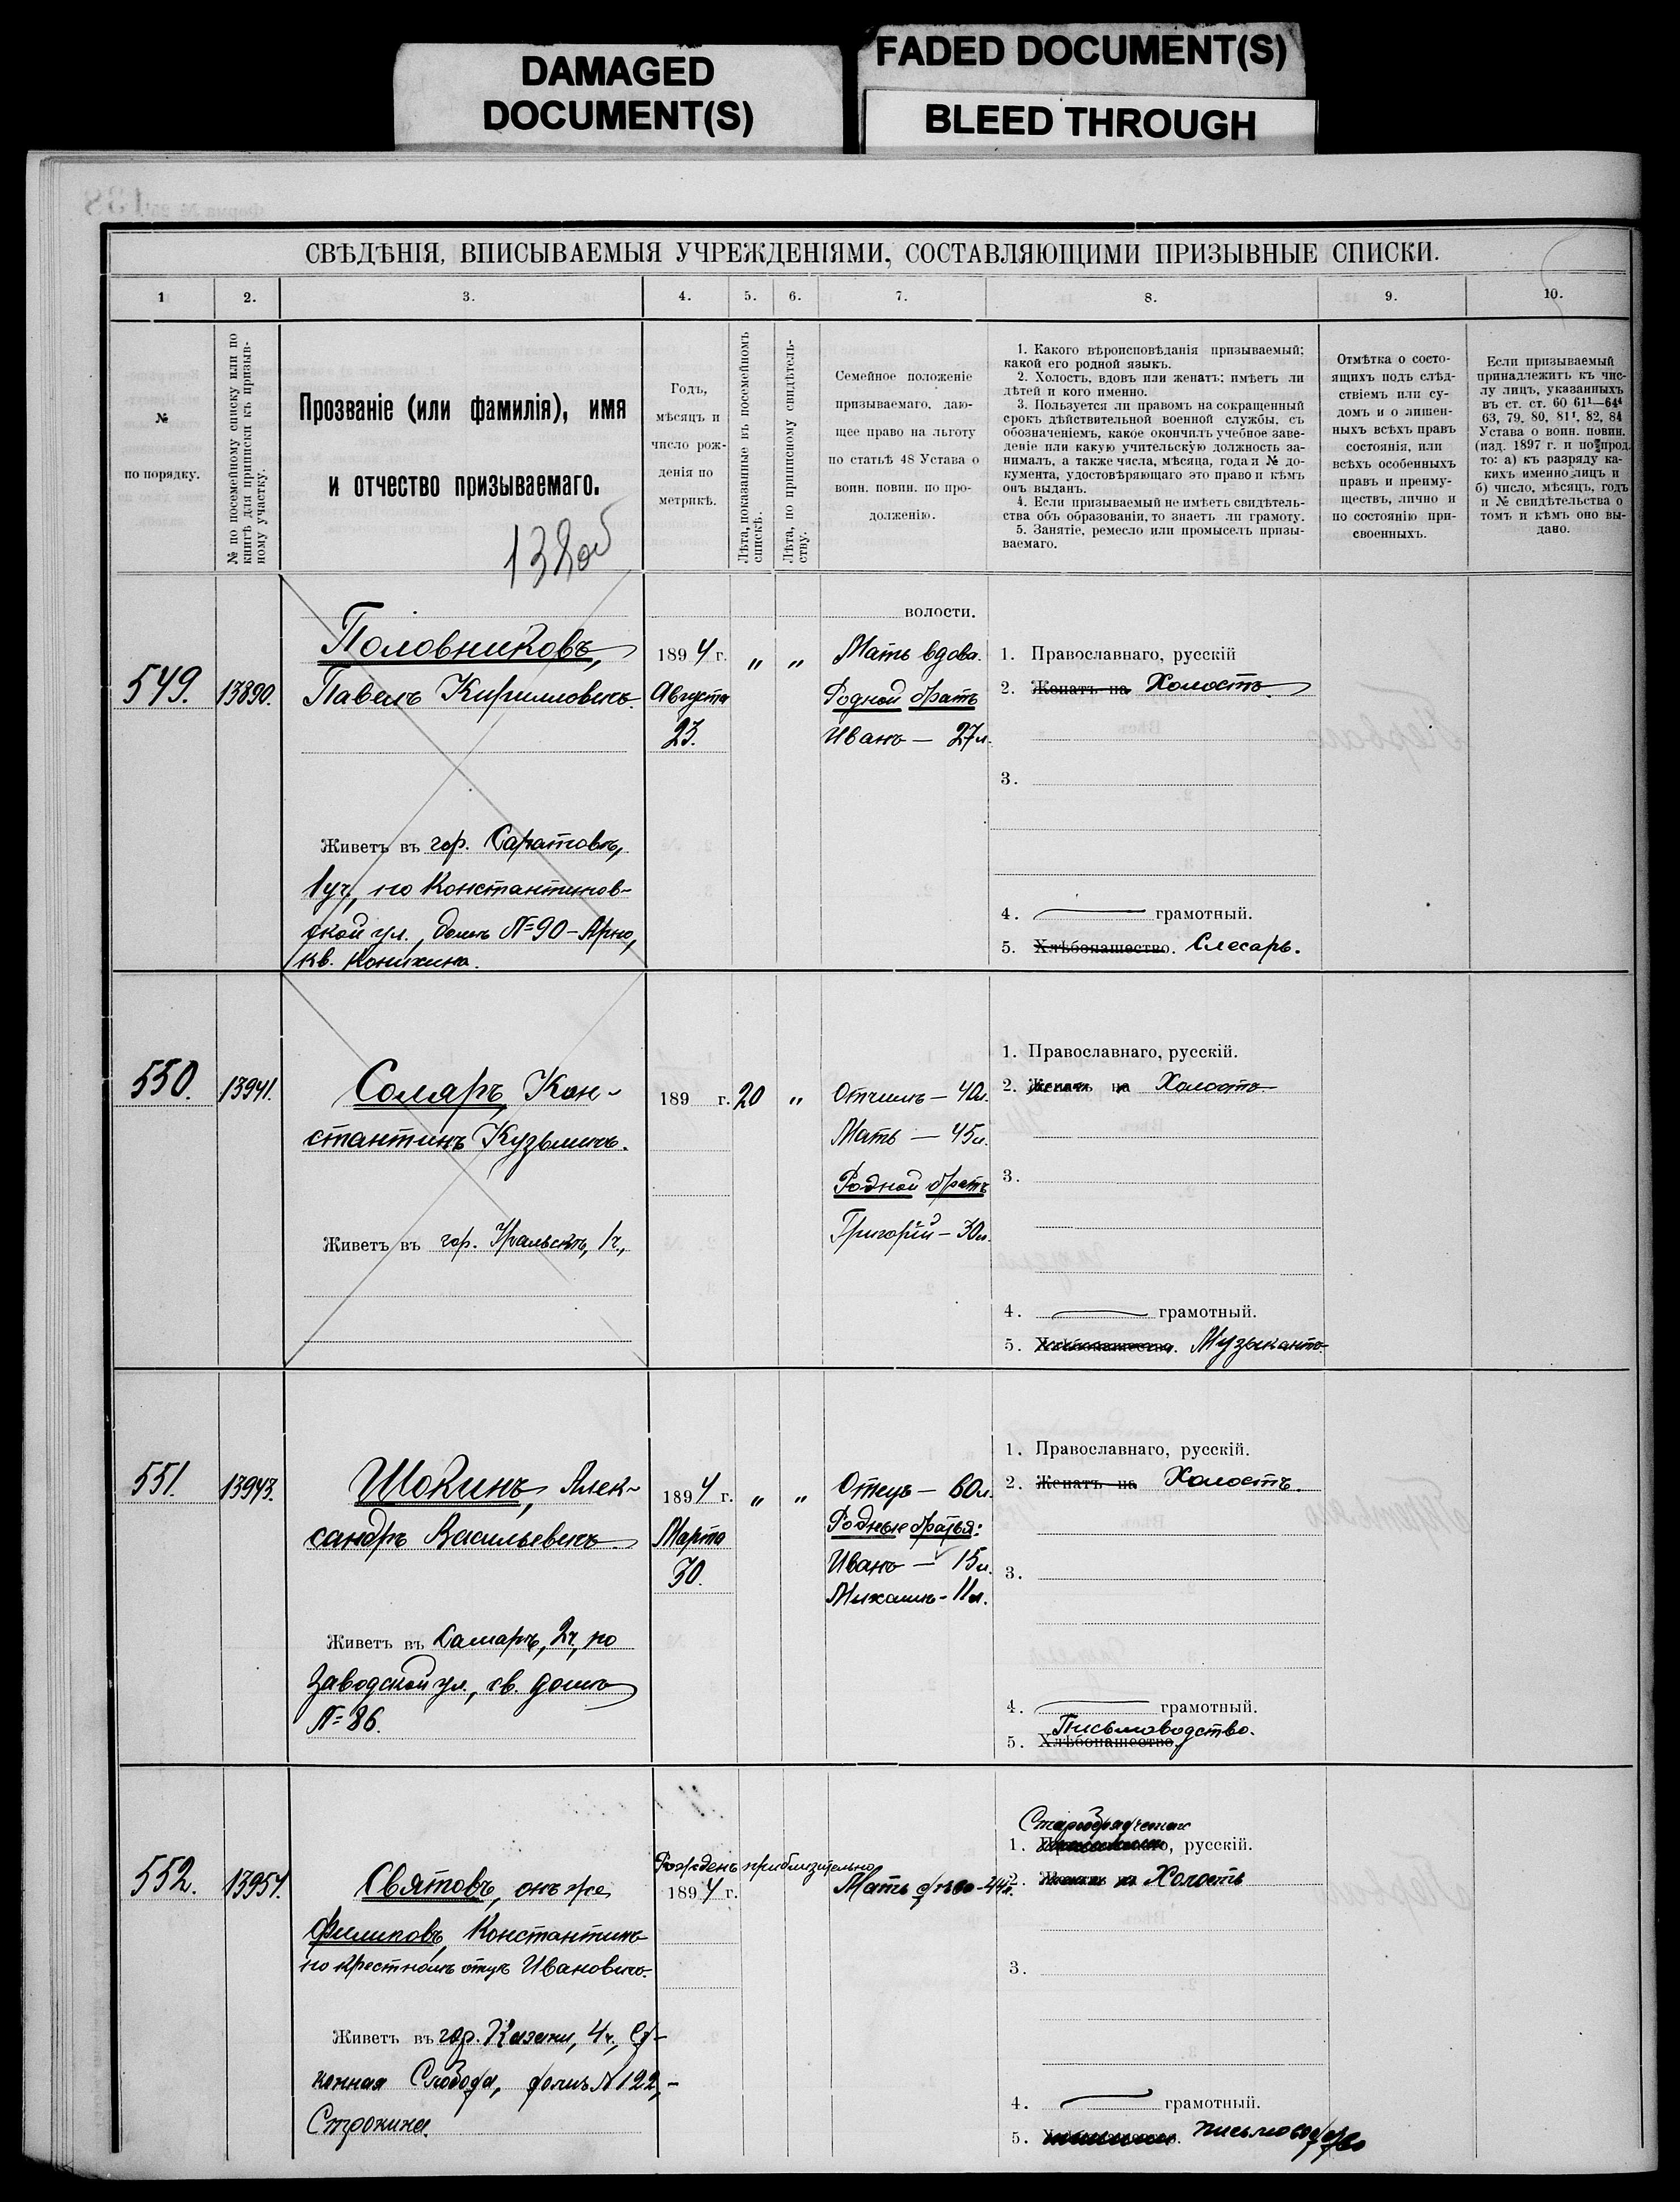 DAMAGED
DOCUMENT(S)
FADED DOCUMENT(S)
BLEED THROUGH
СВѢДѢНІЯ, ВПИСЫВАЕМЫЯ УЧРЕЖДЕНІЯМИ, СОСТАВЛЯЮЩИМИ ПРИЗЫВНЫЕ СПИСКИ.
1 2. 3. 4. 5. 6. 7. 8. 9. 10.
№
по порядку.
№ по посемейному списку или по
книгѣ для приписки къ призыв-
ному участку.
Прозваніе (или фамилія), имя
и отчество призываемаго.
138об
Годъ,
мѣсяцъ и
число рож-
денія по
метрикѣ.
Лѣта, показанные въ посемейномъ
спискѣ.
Лѣта, по приписному свидѣтель-
ству.
Семейное положеніе
призываемаго, даю-
щее право на льготу
по статьѣ 48 Устава о
воин. повин. по про-
долженію.
1. Какого вѣроисповѣданія призываемый;
какой его родной языкъ.
2. Холостъ, вдовъ или женатъ; имѣетъ ли
дѣтей и кого именно.
3. Пользуется ли правомъ на сокращенный
срокъ дѣйствительной военной службы, съ
обозначеніемъ, какое окончилъ учебное заве-
деніе или какую учительскую должность за-
нималъ, а также числа, мѣсяца, года и № до-
кумента, удостовѣряющаго это право и кѣмъ
онъ выданъ.
4. Если призываемый не имѣетъ свидѣтель-
ства объ образованіи, то знаетъ ли грамоту.
5. Занятіе, ремесло или промыселъ призы-
ваемаго.
Отмѣтка о состо-
ящихъ подъ слѣд-
ствіемъ или су-
домъ и о лишен-
ныхъ всѣхъ правъ
состоянія, или
всѣхъ особенныхъ
правъ и преиму-
ществъ, лично и
по состоянію при-
своенныхъ.
Если призываемый
принадлежитъ къ чис-
лу лицъ, указанныхъ
въ ст. ст. 60 61¹—64⁴
63, 79, 80, 81¹, 82, 84
Устава о воин. повин.
(изд. 1897 г. и по прод.
то: а) къ разряду ка-
кихъ именно лицъ и
б) число, мѣсяцъ, годъ
и № свидѣтельства о
томъ и кѣмъ оно вы-
дано.
549.
13890.
Половниковъ,
Павелъ Кирилловичъ.
Живетъ въ гор. Саратовѣ,
1 уч, по Константинов-
ской ул., домъ №90 – Арно,
кв. Коникина.
1894 г.
Августа
23.
„ „
волости.
Мать вдова.
Родной братъ
Иванъ — 27 л.
1. Православнаго, русскій
2. Женатъ на Холостъ.
3.
4. грамотный.
5. Хлѣбопашество. Слесарь.
550.
13941.
Соларъ, Кон-
стантинъ Кузьмичъ.
Живетъ въ гор. Уральскѣ, 1ч.,
189 г.
20 „
Отчимъ — 40 л.
Мать — 45 л.
Родной братъ
Григорій — 30 л.
1. Православнаго, русскій.
2. Женатъ на Холостъ
3.
4. грамотный.
5. Хлѣбопашество. Музыкантъ.
551.
13943.
Шокинъ, Алек-
сандръ Васильевичъ.
Живетъ въ Самарѣ, 2ч, по
Заводской ул., св. домъ
№ 86.
1894 г.
Марта
30.
„ „
Отецъ — 60 л.
Родные братья:
Иванъ — 15 л.
Михаилъ - 11 л.
1. Православнаго, русскій.
2. Женатъ на Холостъ.
3.
4. грамотный.
5. Хлѣбопашество. Письмоводство.
552.
13954.
Святовъ, онъ же
Филиповъ, Константинъ
по крестному отцу Ивановичъ.
Живетъ въ гор. Казани, 4ч.,
Слобода, домъ № 122, -
Строкина.
Рожденъ приблизительно
1894 г.
Мать дѣва - 44 л.
Старообрядческаго
1. Православнаго, русскій.
2. Женатъ на Холостъ
3.
4. грамотный.
5. Хлѣбопашество. письмоводство